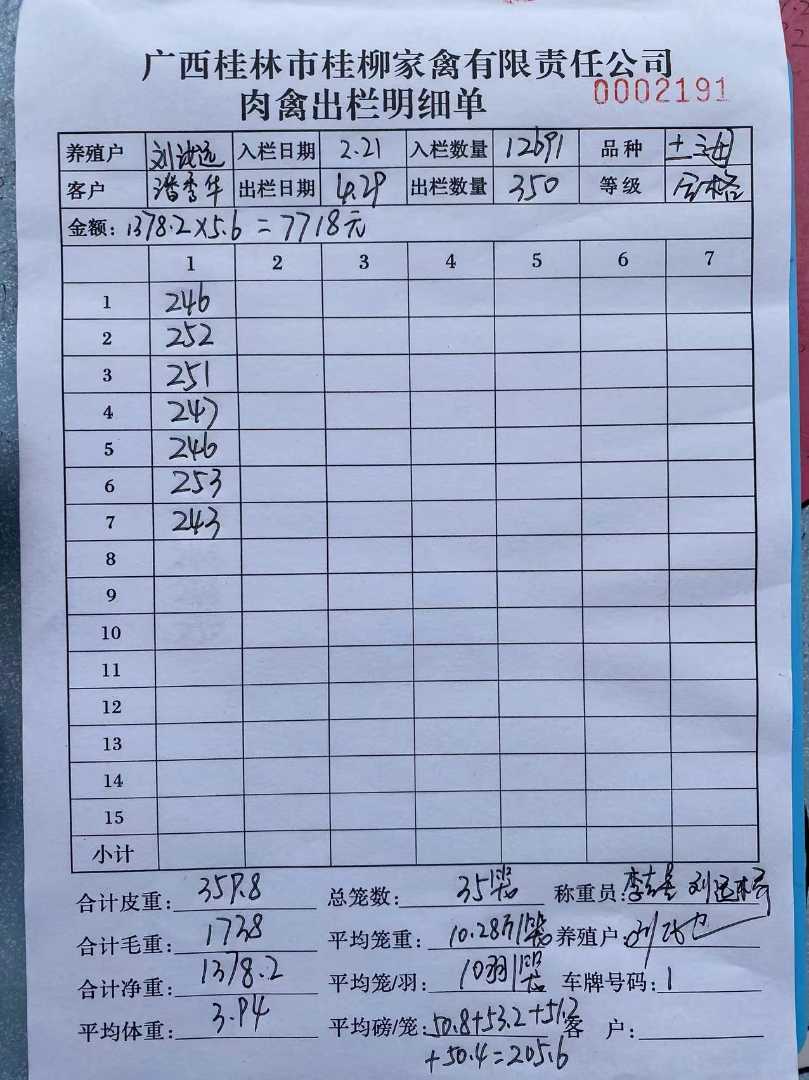 广西桂林市桂柳家禽有限责任公司
肉禽出栏明细单
0002191
养殖户 入栏日期 2.21 入栏数量 12691 品种
客户 潘秀华 出栏日期 4.29 出栏数量 350 等级 合格
金额: 1378.2×5.6=7718元
1 2 3 4 5 6 7
1 246
2 252
3 251
4 247
5 246
6 253
7 243
8
9
10
11
12
13
14
15
小计
合计皮重: 359.8 总笼数: 35 称重员:
合计毛重: 1738 平均笼重: 10.28 养殖户:
合计净重: 1378.2 平均笼/羽: 10羽 车牌号码: 1
平均体重: 3.94 平均磅/笼: 50.8+53.2+51.2 客 户:
+50.4=205.6